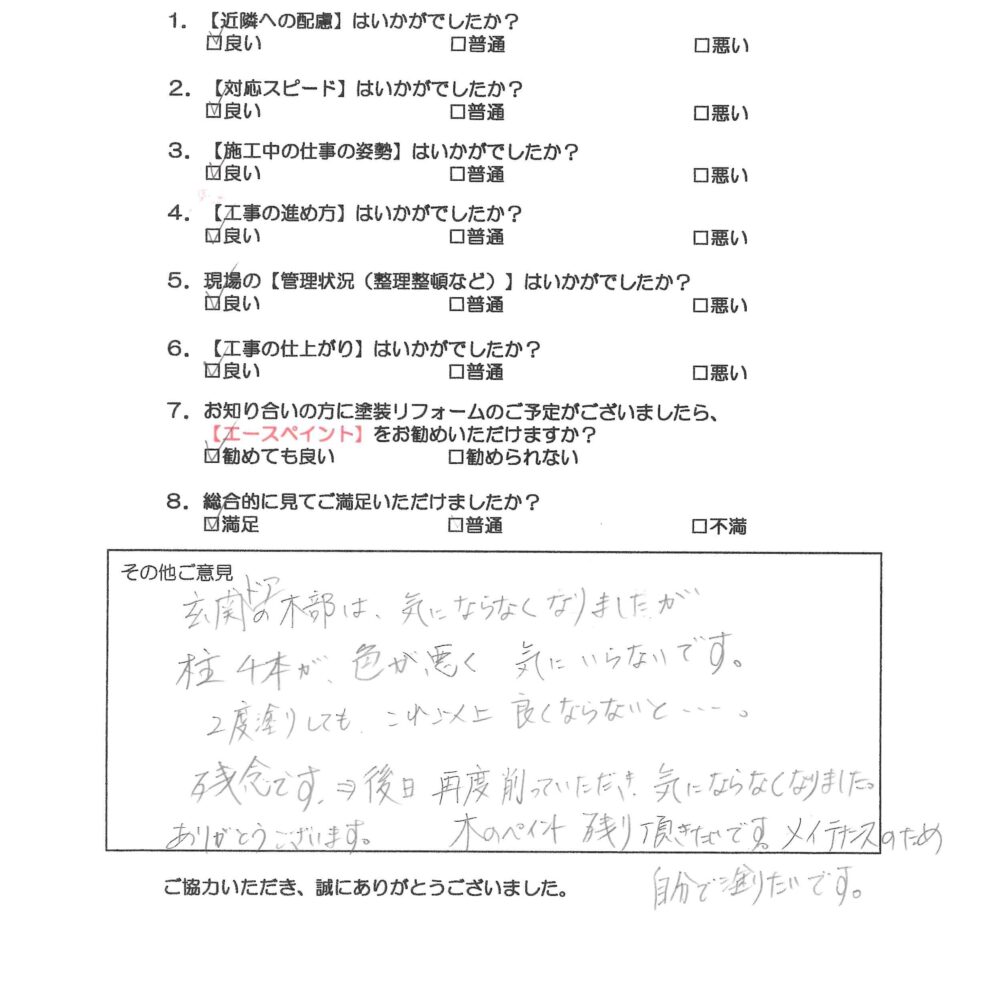 1．【近隣への配慮】はいかがでしたか？
☑良い □普通 □悪い
2．【対応スピード】はいかがでしたか？
☑良い □普通 □悪い
3．【施工中の仕事の姿勢】はいかがでしたか？
☑良い □普通 □悪い
4．【工事の進め方】はいかがでしたか？
☑良い □普通 □悪い
5．現場の【管理状況（整理整頓など）】はいかがでしたか？
☑良い □普通 □悪い
6．【工事の仕上がり】はいかがでしたか？
☑良い □普通 □悪い
7．お知り合いの方に塗装リフォームのご予定がございましたら、
【エースペイント】をお勧めいただけますか？
☑勧めても良い □勧められない
8．総合的に見てご満足いただけましたか？
☑満足 ☑普通 □不満
その他ご意見
玄関ドアの木部は、気にならなくなりましたが
柱4本が、色が悪く 気にいらないです。
2度塗りしても、これ以上 良くならないと・・・・。
残念です、⇒後日 再度削っていただき、気にならなくなりました。
ありがとうございます。 木のペイント 残り頂きたいです。メイテナンスのため
自分で塗りたいです。
ご協力いただき、誠にありがとうございました。